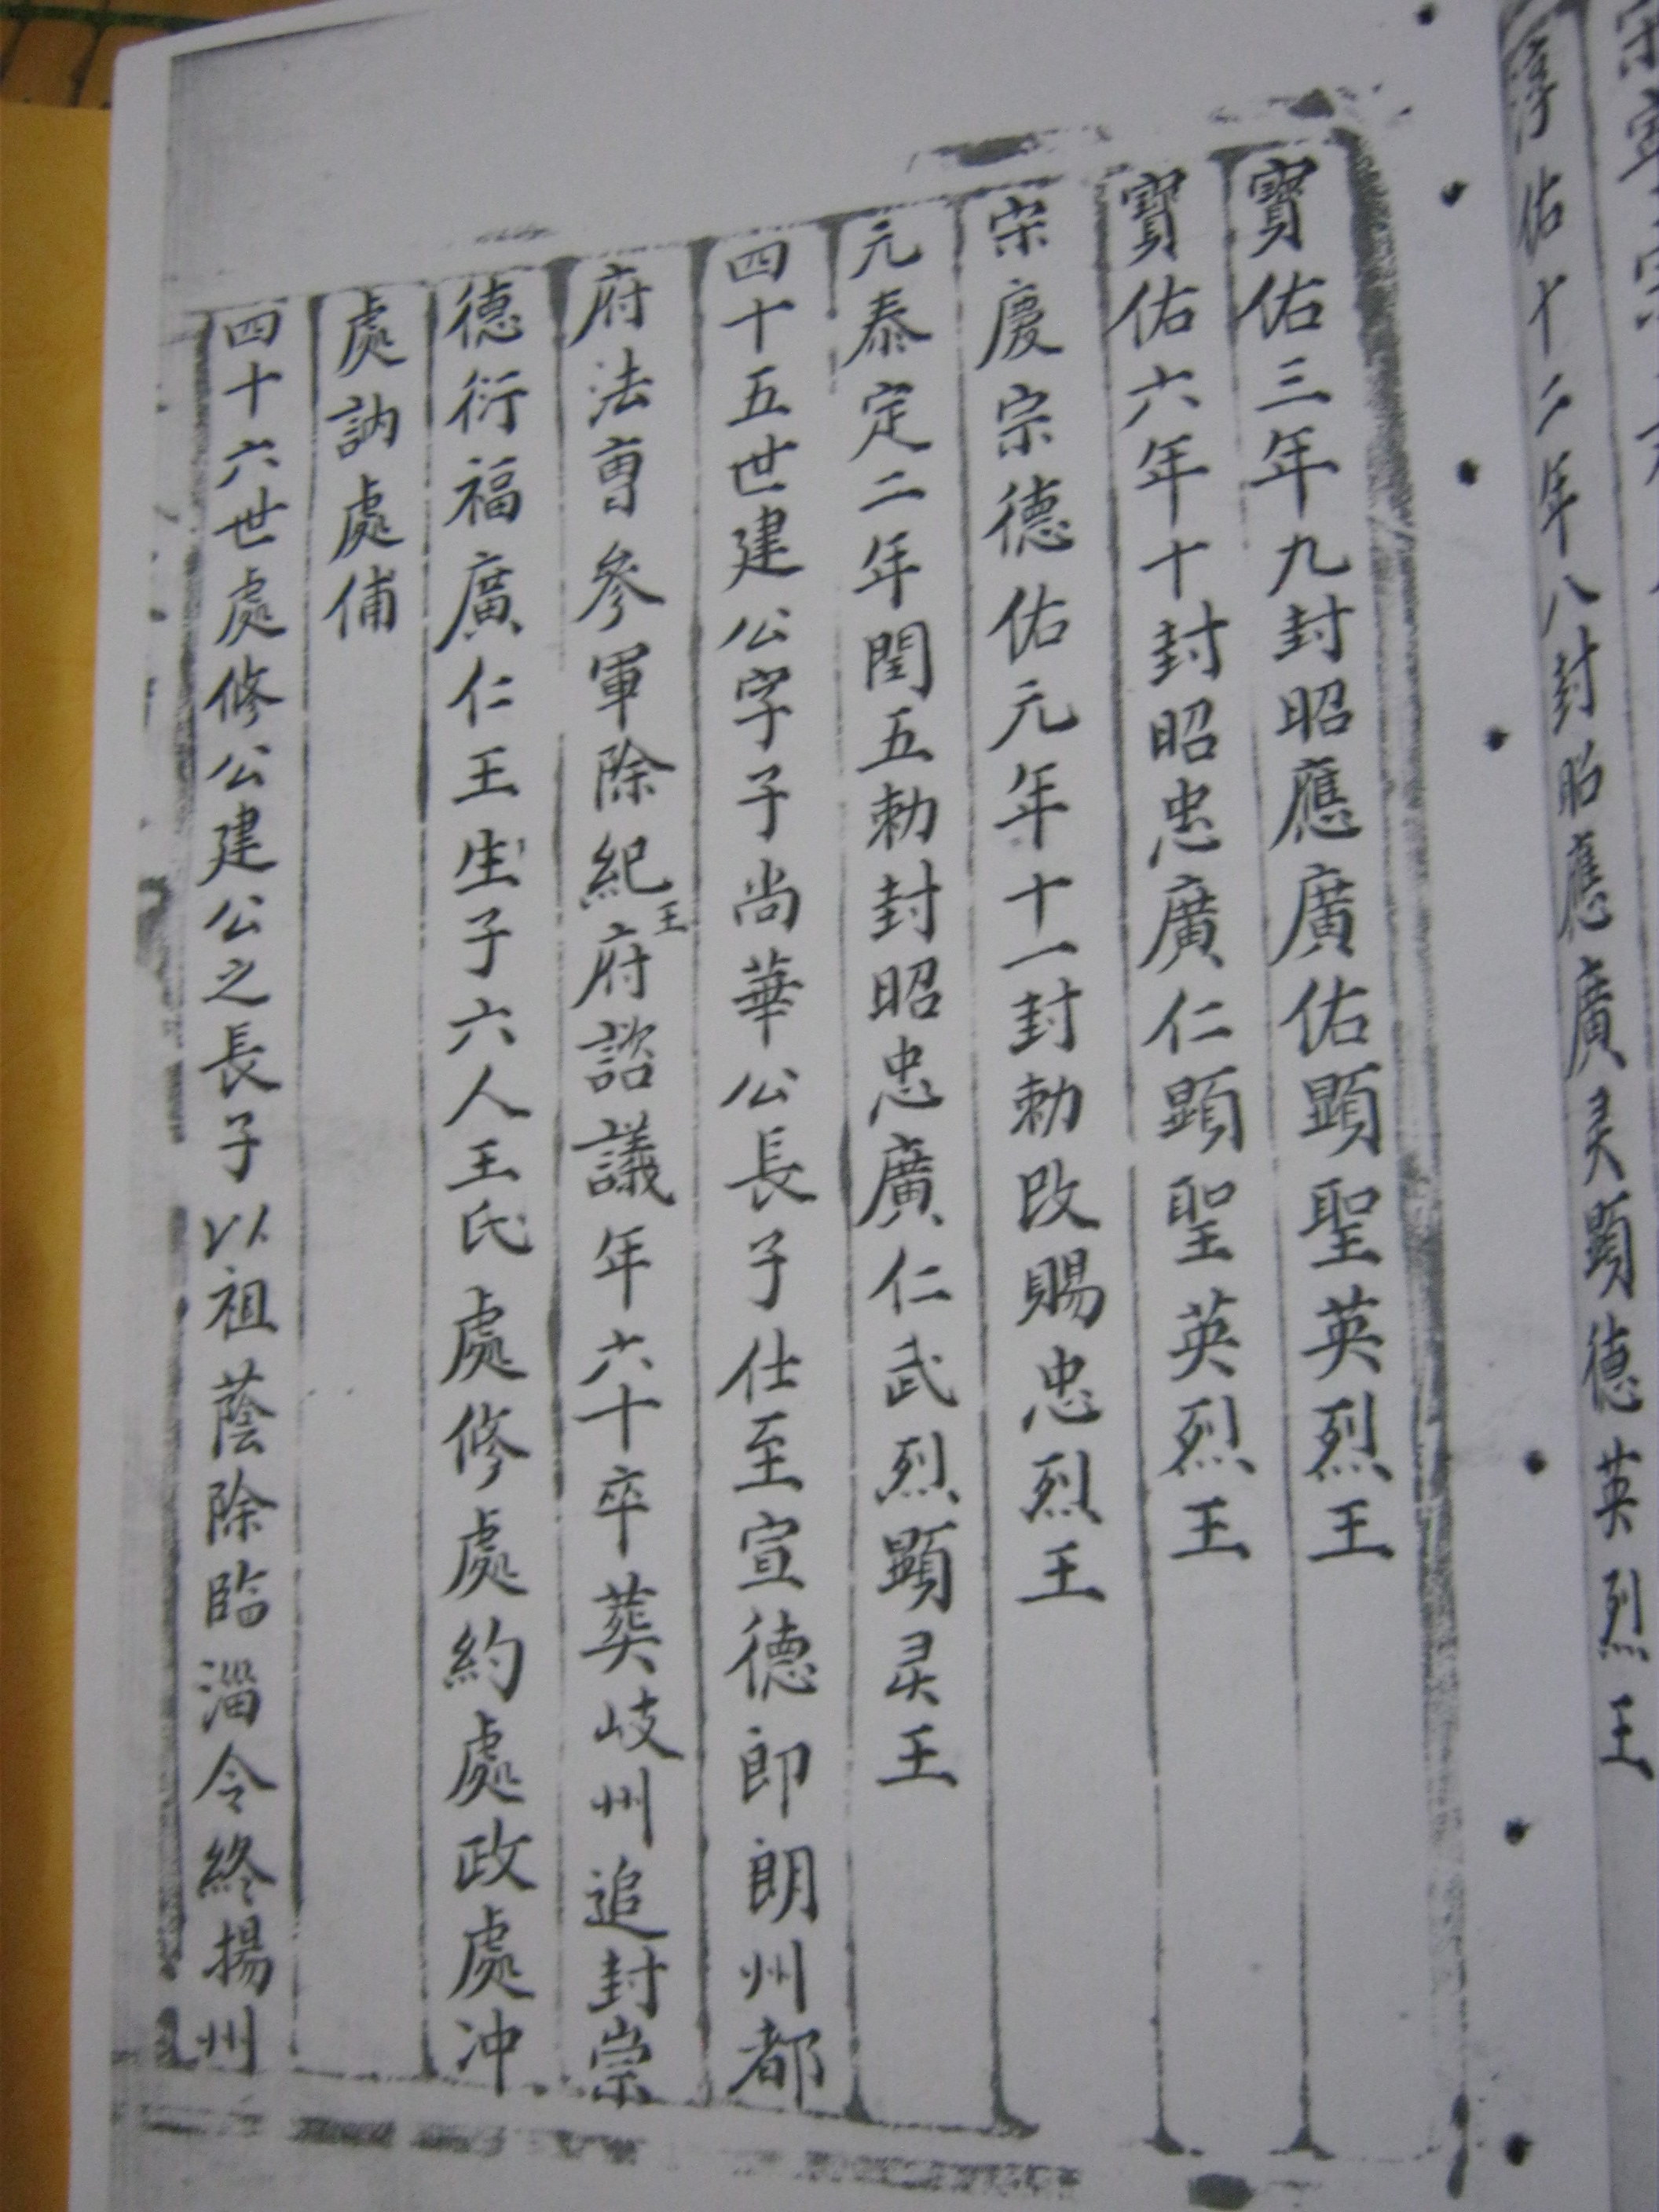 淳佑十二年八封昭應廣灵顕德英烈王
寳佑三年九封昭應廣佑顕聖英烈王
寳佑六年十封昭忠廣仁顕聖英烈王
宋度宗德佑元年十一封勅改賜忠烈王
元泰定二年閏五勅封昭忠廣仁武烈顕灵王
四十五世建公字子尚華公長子仕至宣德郎朗州都
府法曹參軍除紀王府諮議年六十卒葬岐州追封崇
德衍福廣仁王生子六人王氏處修處約處政處冲
處訥處俌
四十六世處修公建公之長子以祖蔭除臨淄令終揚州